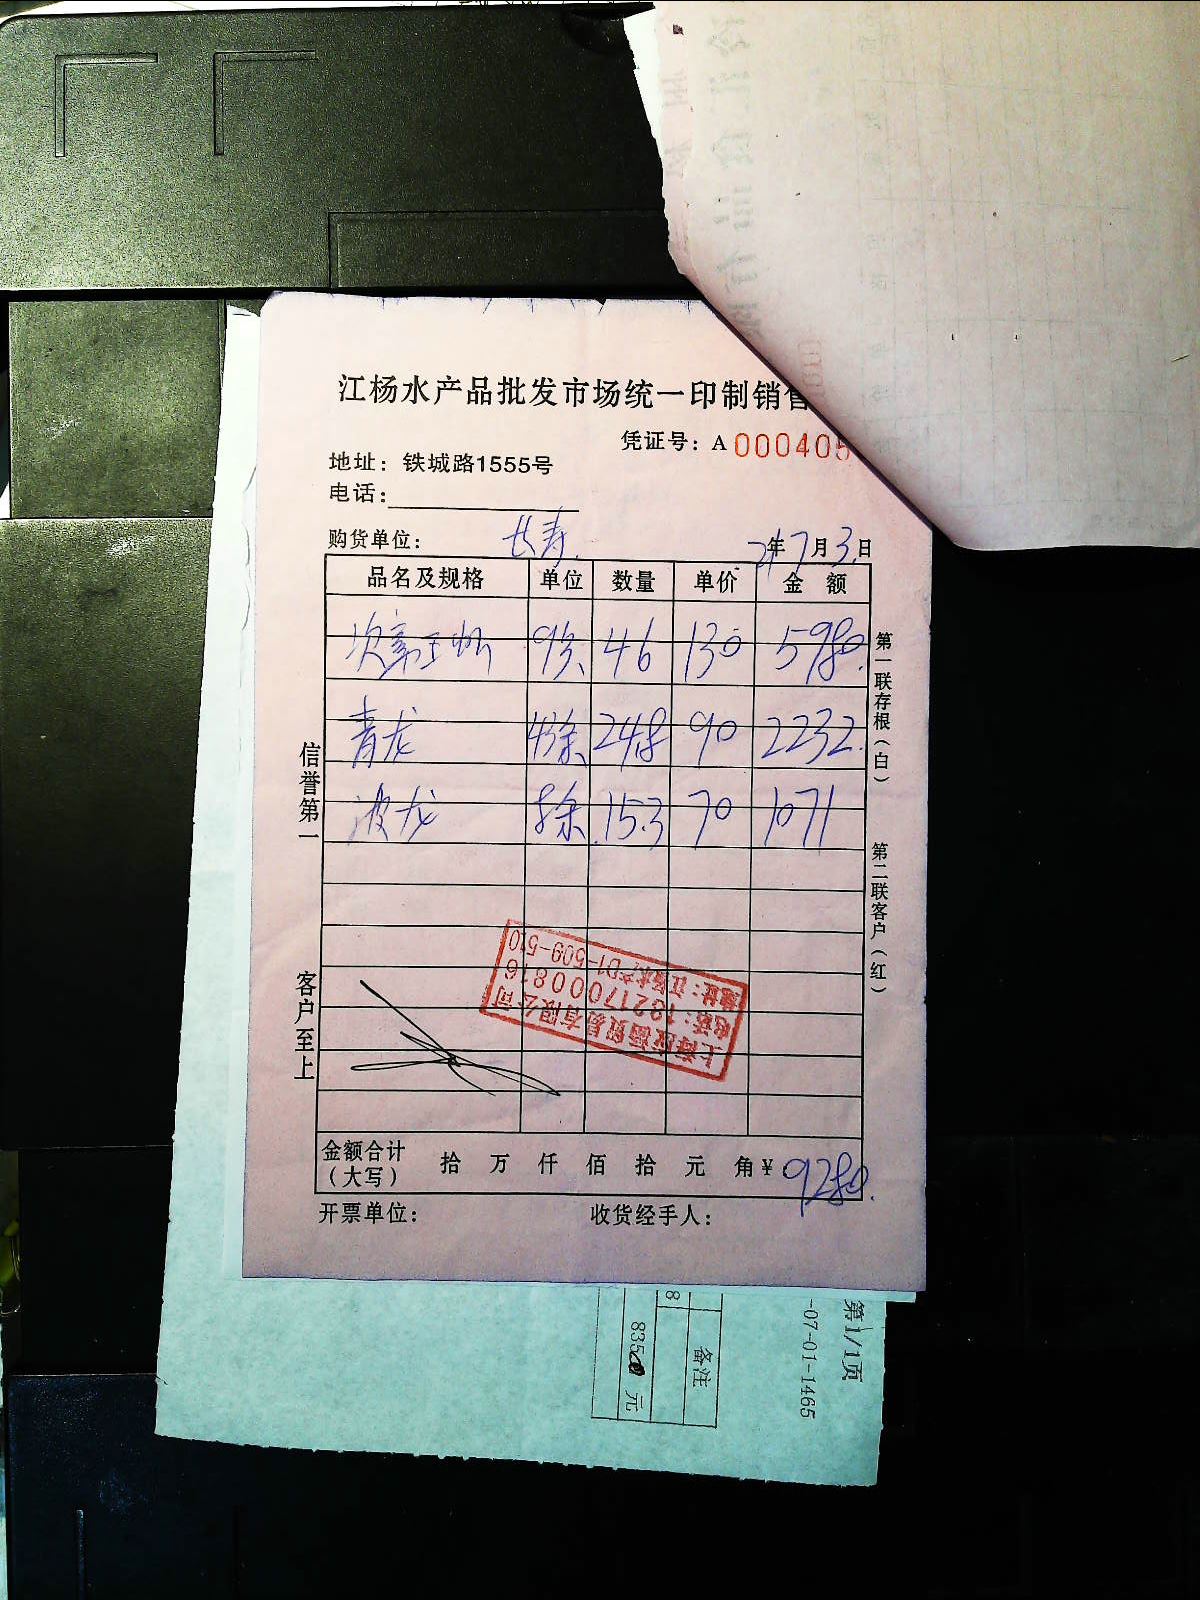 江杨水产品批发市场统一印制销售
凭证号：A 000405
地址：铁城路1555号
电话：
购货单位： 长寿. 21年7月3日
品名及规格 单位 数量 单价 金 额
46 130 5980.
青龙 24.8 90 2232.
波龙 15.3 70 1071
金额合计（大写） 拾 万 仟 佰 拾 元 角 ¥ 9280.
开票单位： 收货经手人：
信誉第一
客户至上
第一联存根（白）
第二联客户（红）
贸易有限公司
电话：13217000816
地址：江杨水产D1-509-510
第1/1页
-07-01-1465
备注
8
元